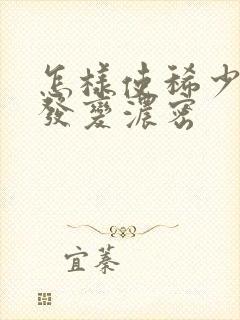 怎樣使稀少
發變濃密
宜蓁